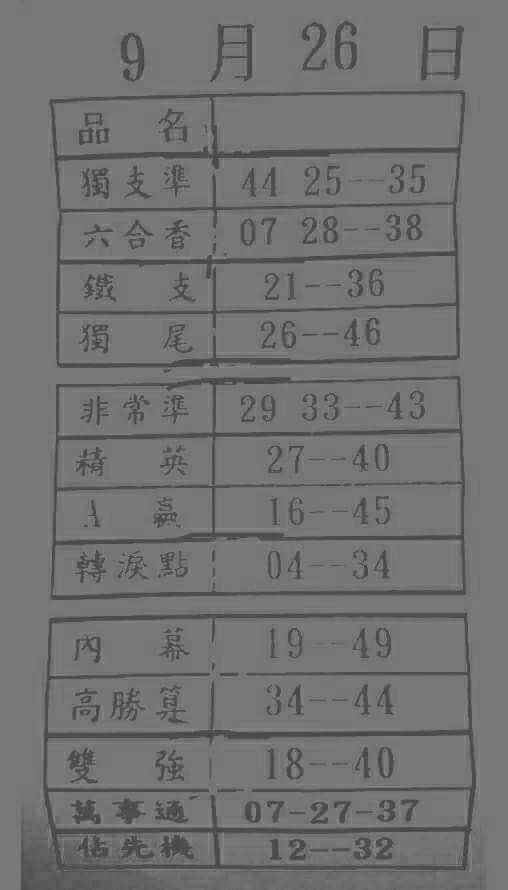 9 月 26 日
品 名
獨支準 44 25--35
六合香 07 28--38
鐵 支 21--36
獨 尾 26--46
非常準 29 33--43
精 英 27--40
A 贏 16--45
轉淚點 04--34
內 幕 19--49
高勝算 34--44
雙 強 18--40
萬事通 07-27-37
佔先機 12--32